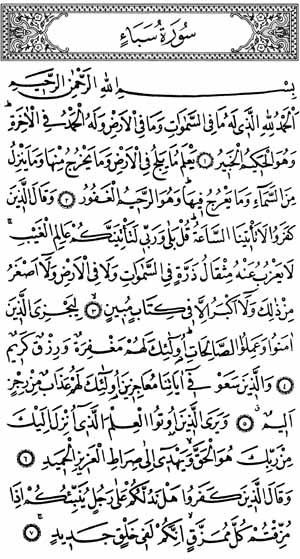 سُورَةُ سَبَاءٍ
بِسْمِ اللهِ الرَّحْمٰنِ الرَّحِيمِ
اَلْحَمْدُ لِلّٰهِ الَّذِي لَهُ مَا فِي السَّمٰوَاتِ وَمَا فِي الْاَرْضِ وَلَهُ الْحَمْدُ فِي الْاٰخِرَةِ
وَهُوَ الْحَكِيمُ الْخَبِيرُ ١ يَعْلَمُ مَا يَلِجُ فِي الْاَرْضِ وَمَا يَخْرُجُ مِنْهَا وَمَا يَنْزِلُ
مِنَ السَّمَاءِ وَمَا يَعْرُجُ فِيهَا وَهُوَ الرَّحِيمُ الْغَفُورُ ٢ وَقَالَ الَّذِينَ
كَفَرُوا لَا تَأْتِينَا السَّاعَةُ قُلْ بَلٰى وَرَبِّي لَتَأْتِيَنَّكُمْ عَالِمِ الْغَيْبِ
لَا يَعْزُبُ عَنْهُ مِثْقَالُ ذَرَّةٍ فِي السَّمٰوَاتِ وَلَا فِي الْاَرْضِ وَلَا اَصْغَرُ
مِنْ ذٰلِكَ وَلَا اَكْبَرُ اِلَّا فِي كِتَابٍ مُبِينٍ ٣ لِيَجْزِيَ الَّذِينَ
اٰمَنُوا وَعَمِلُوا الصَّالِحَاتِ اُولٰئِكَ لَهُمْ مَغْفِرَةٌ وَرِزْقٌ كَرِيمٌ
٤ وَالَّذِينَ سَعَوْ فِي اٰيَاتِنَا مُعَاجِزِينَ اُولٰئِكَ لَهُمْ عَذَابٌ مِنْ رِجْزٍ
اَلِيمٌ ٥ وَيَرَى الَّذِينَ اُوتُوا الْعِلْمَ الَّذِي اُنْزِلَ اِلَيْكَ
مِنْ رَبِّكَ هُوَ الْحَقَّ وَيَهْدِي اِلٰى صِرَاطِ الْعَزِيزِ الْحَمِيدِ ٦
وَقَالَ الَّذِينَ كَفَرُوا هَلْ نَدُلُّكُمْ عَلٰى رَجُلٍ يُنَبِّئُكُمْ اِذَا
مُزِّقْتُمْ كُلَّ مُمَزَّقٍ اِنَّكُمْ لَفِي خَلْقٍ جَدِيدٍ ٧